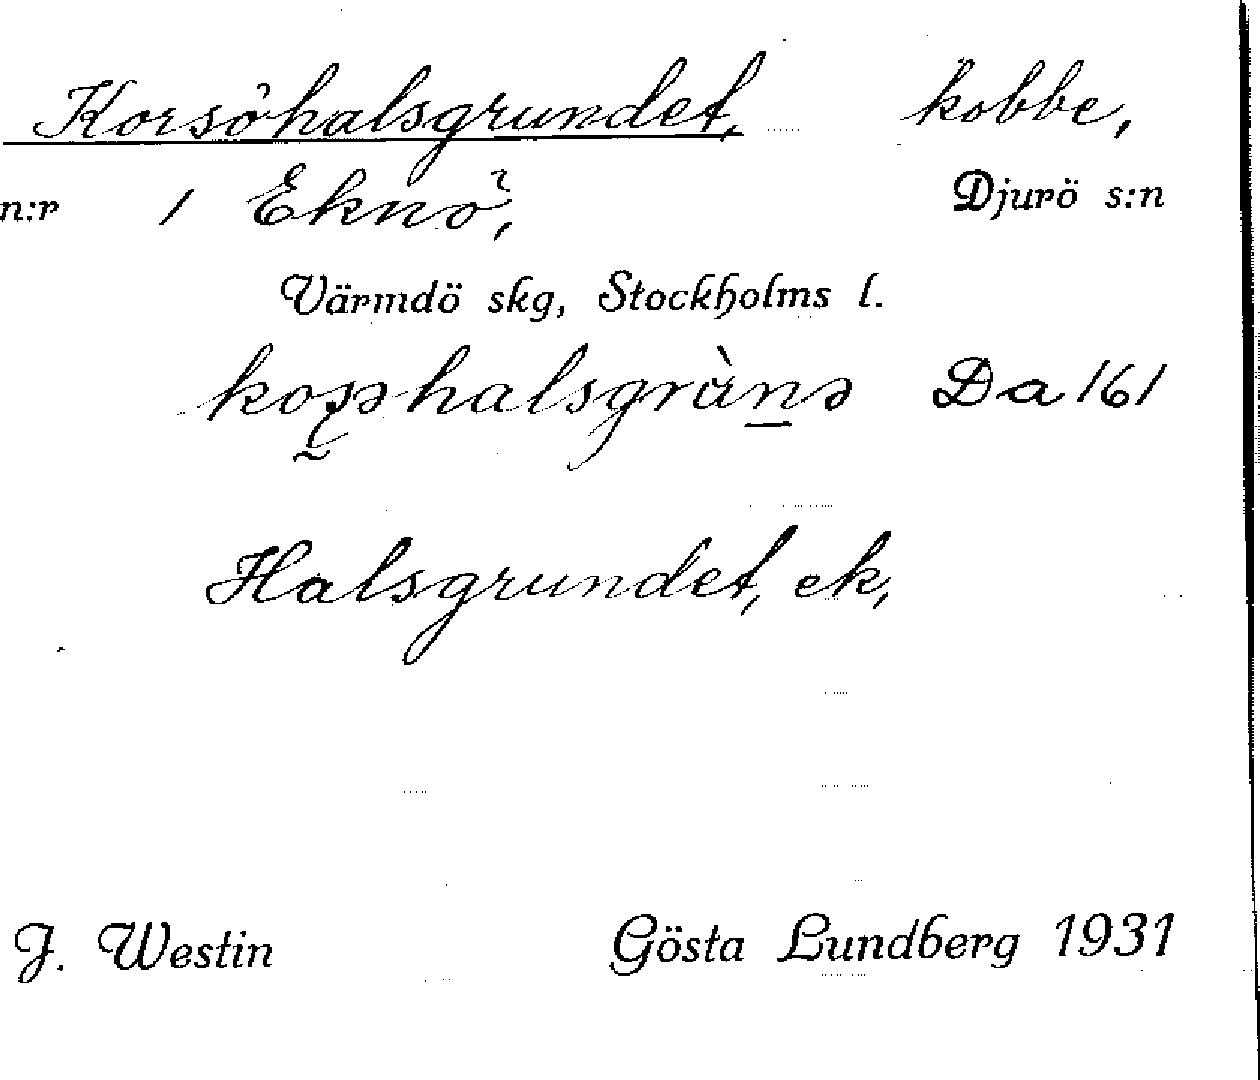 Korsöhalsgrundet, kobbe,
n:r 1 Eknö, Djurö s:n
Värmdö skg, Stockholms l.
Da 161
Halsgrundet, ek,
J. Westin Gösta Lundberg 1931